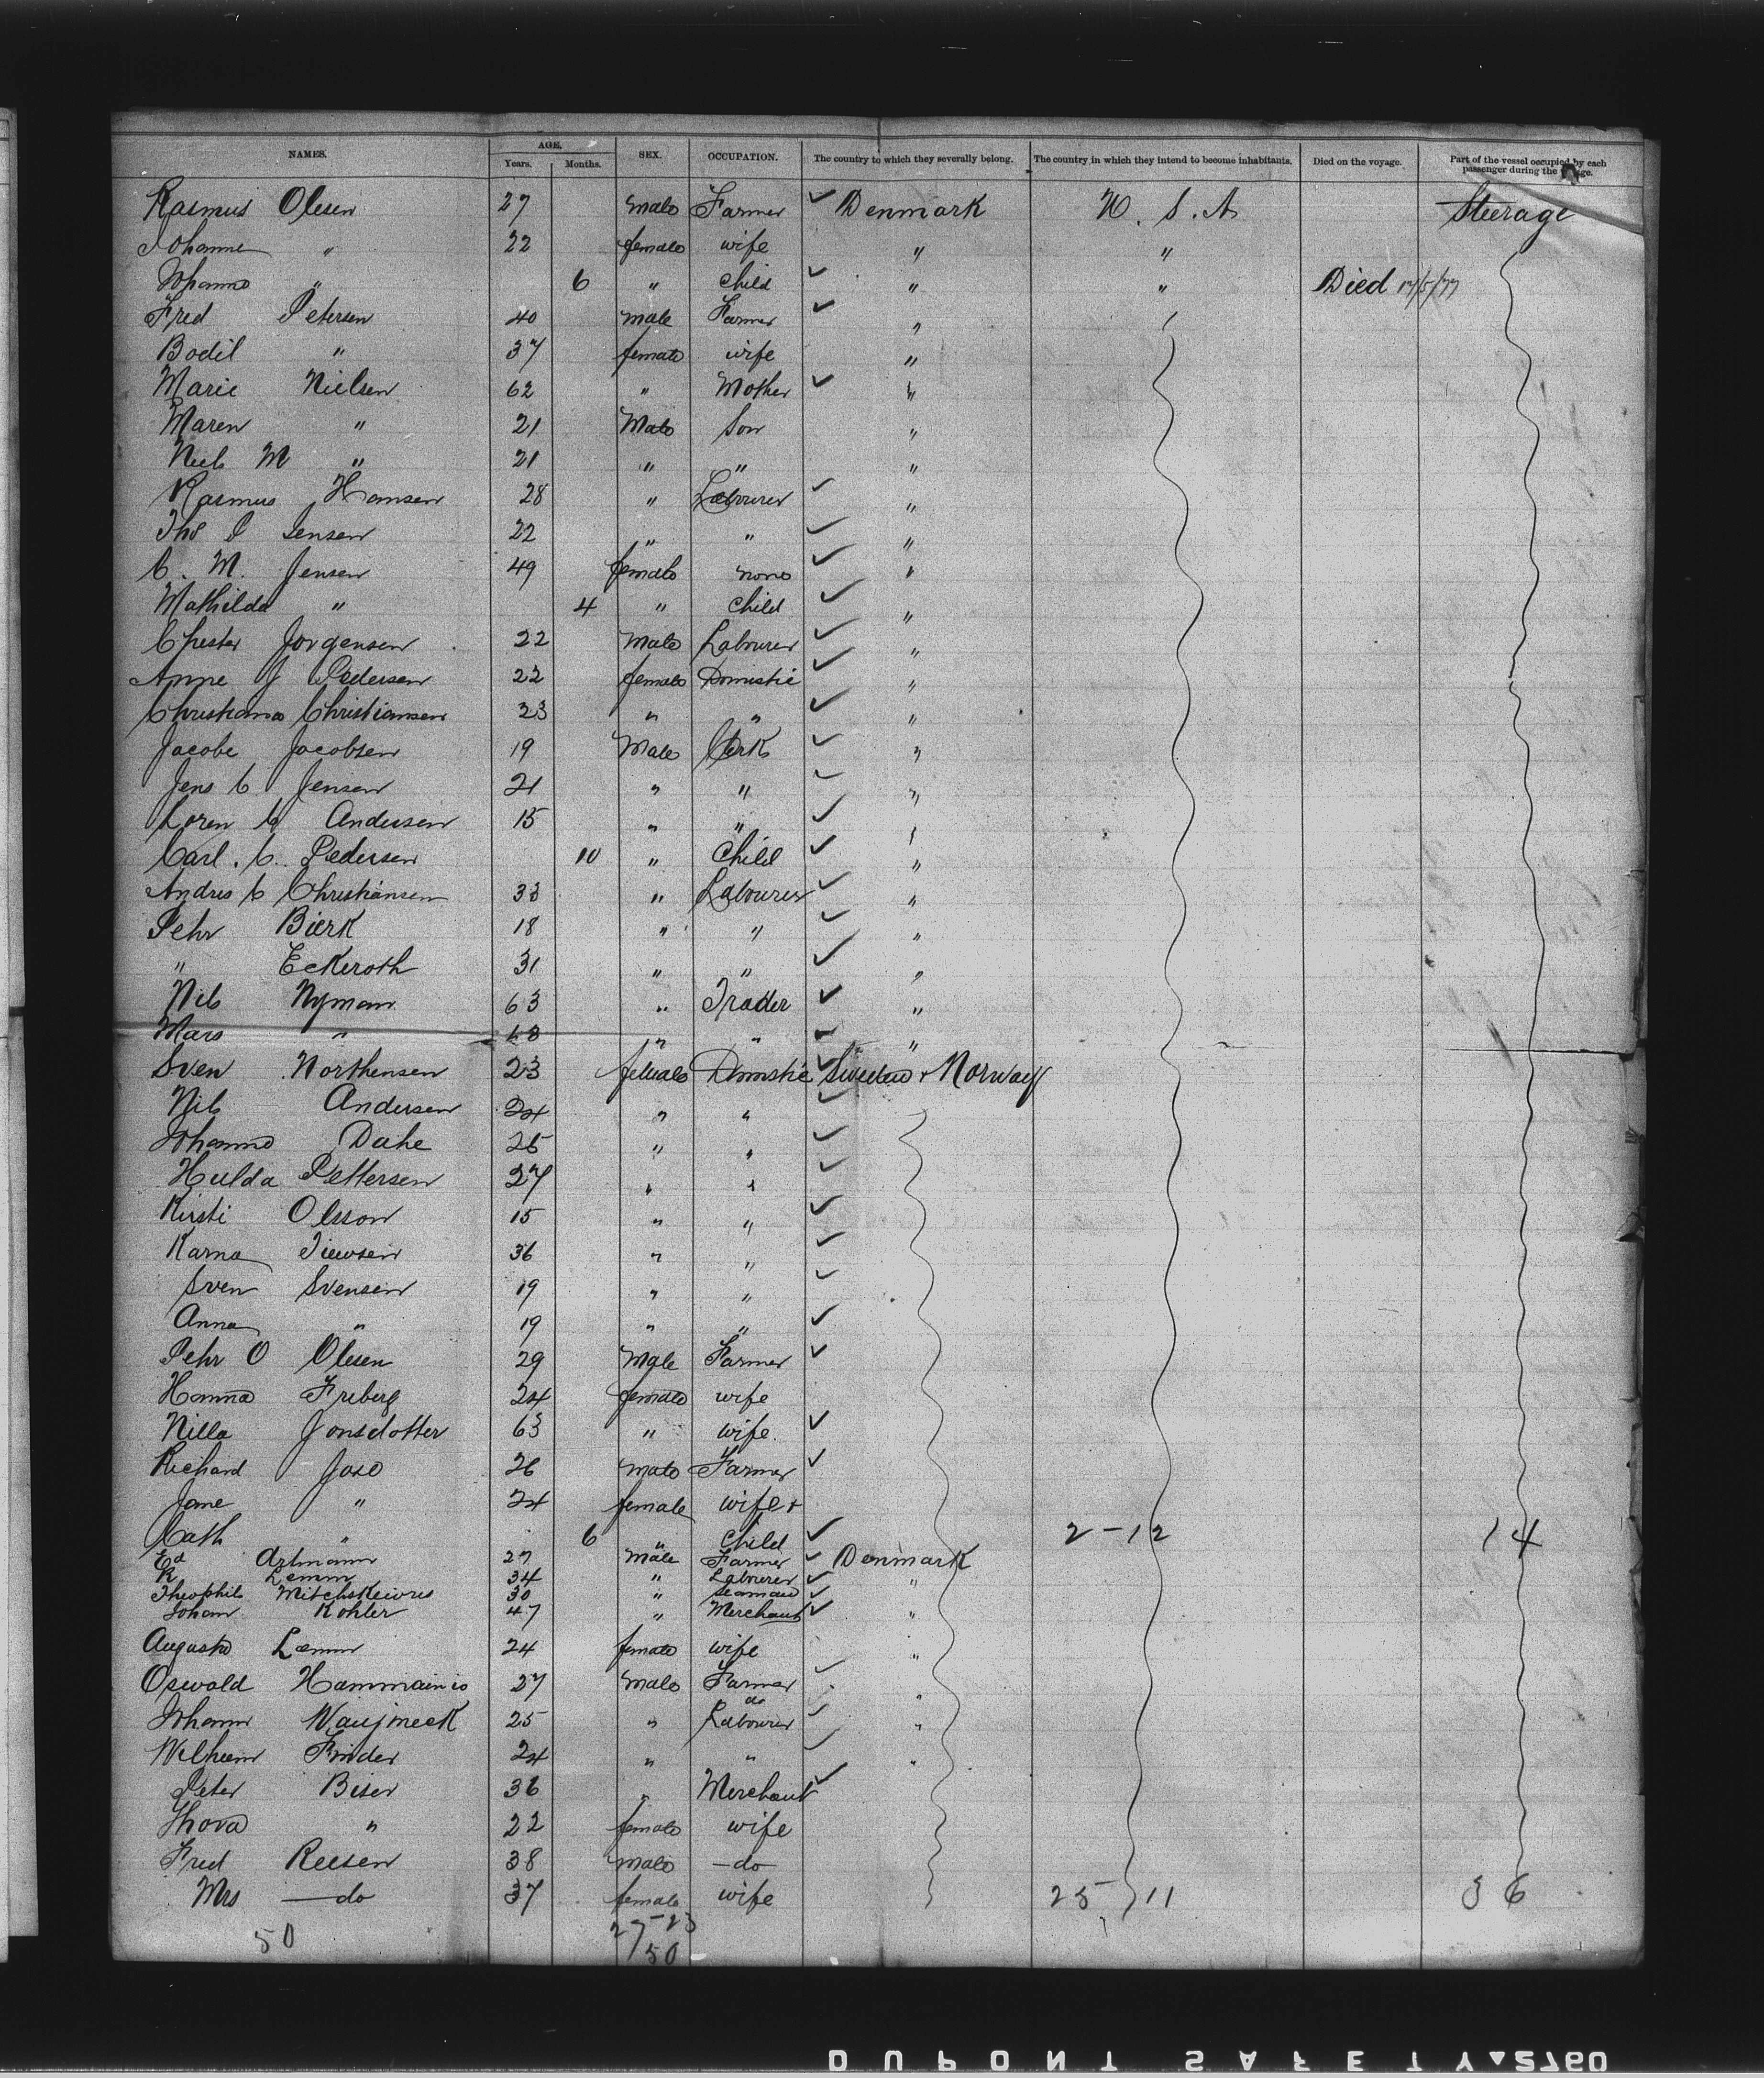 NAMES. AGE. SEX. OCCUPATION. The country to which they severally belong. The country in which they intend to become inhabitants. Died on the voyage. Part of the vessel occupied by each
Years. Months. passenger during the
Rasmus Olesen 27 male Farmer Denmark U. S. A Steerage
Johanne " 22 female wife " "
Johanne " 6 " child " " Died 17/5/77
Fred Petersen 40 male Farmer "
Bodil " 37 female wife "
Marie Nielsen 62 " Mother "
Maren " 21 Male Son "
Niels M " 21 " " "
Rasmus Hansen 28 " Labourer "
Ths P Jensen 22 " " "
C. M. Jensen 49 female none "
Mathilda " 4 " child "
Chester Jorgensen 22 male Labourer "
Anne J Pedersen 22 female Domestic "
Christiana Christiansen 23 " " "
Jacobe Jacobsen 19 Male Clerk "
Jens C Jensen 21 " " "
Loren C Andersen 15 " " "
Carl. C. Pedersen 10 " Child "
Andres C Christiansen 33 " Labourer "
Pehr Bierk 18 " " "
" Eckeroth 31 " " "
Nils Nyman 63 " Trader "
Mars " " " "
Sven Northensen 23 female Domestic Sweden & Norway
Nils Andersen 24 " "
Johanna Dahe 25 " "
Hulda Pettersen 27 " "
Kirsti Olsson 15 " "
Karna 36 " "
Sven Svensen 19 " "
Anna " 19 " "
Pehr O Olesen 29 Male Farmer
Hanna Friberg 24 female wife
Nilla Jonsdotter 63 " wife.
Richard 26 male Farmer
Jane " 24 female wife +
Cath " 6 " Child 2-12 14
Ed Artmann 27 Male Farmer Denmark
K Lemm 34 " Labourer "
Theophils 30 " Seaman
Johann Kohler 47 " Merchant "
Augusta Lemm 24 female wife "
Oswald 27 male Farmer "
do
Johann 25 " Labourer "
Wilheim Finder 24 " " "
Peter Biser 36 " Merchant
Thora " 22 female wife
Fred Reesen 38 male —do—
Mrs —do 37 female wife 25 11 36
50 27-23
50
DUPONT SAFETY 2760